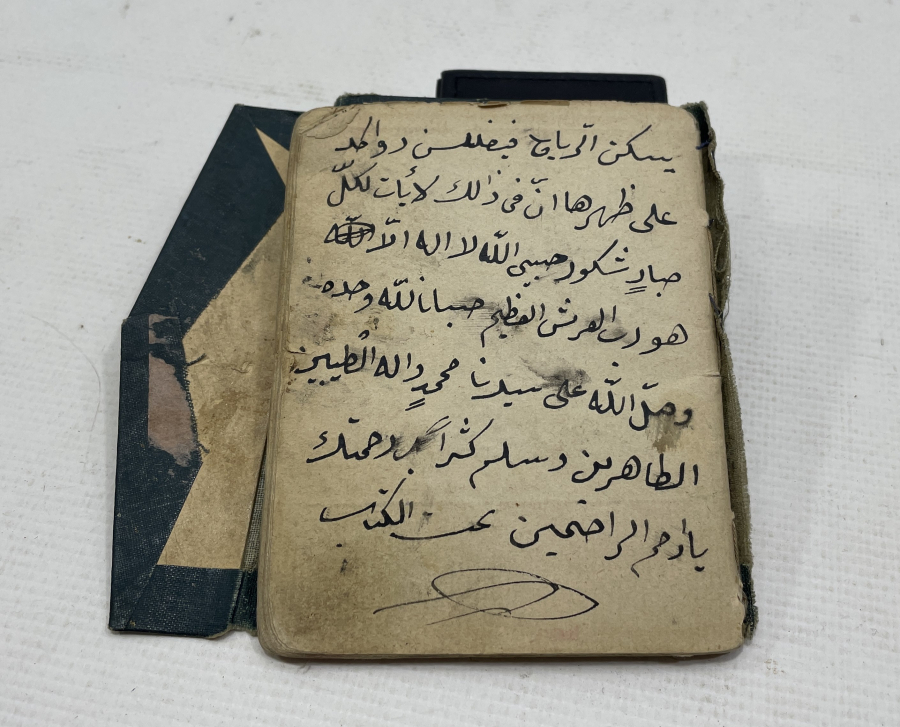 يسكن الرّياح فيظللن رواكد
على ظهرها انّ في ذالك لأيات لكلّ
صبارٍ شكور حسبي اللّه لا اله الّا
هو رب العرش العظيم حسبنا اللّه وحده
وصلّ اللّه على سيدنا محمدٍ واله الطيبين
الطاهرين وسلم كثراً برحمتك
ياارحم الراحمين تمت الكتاب